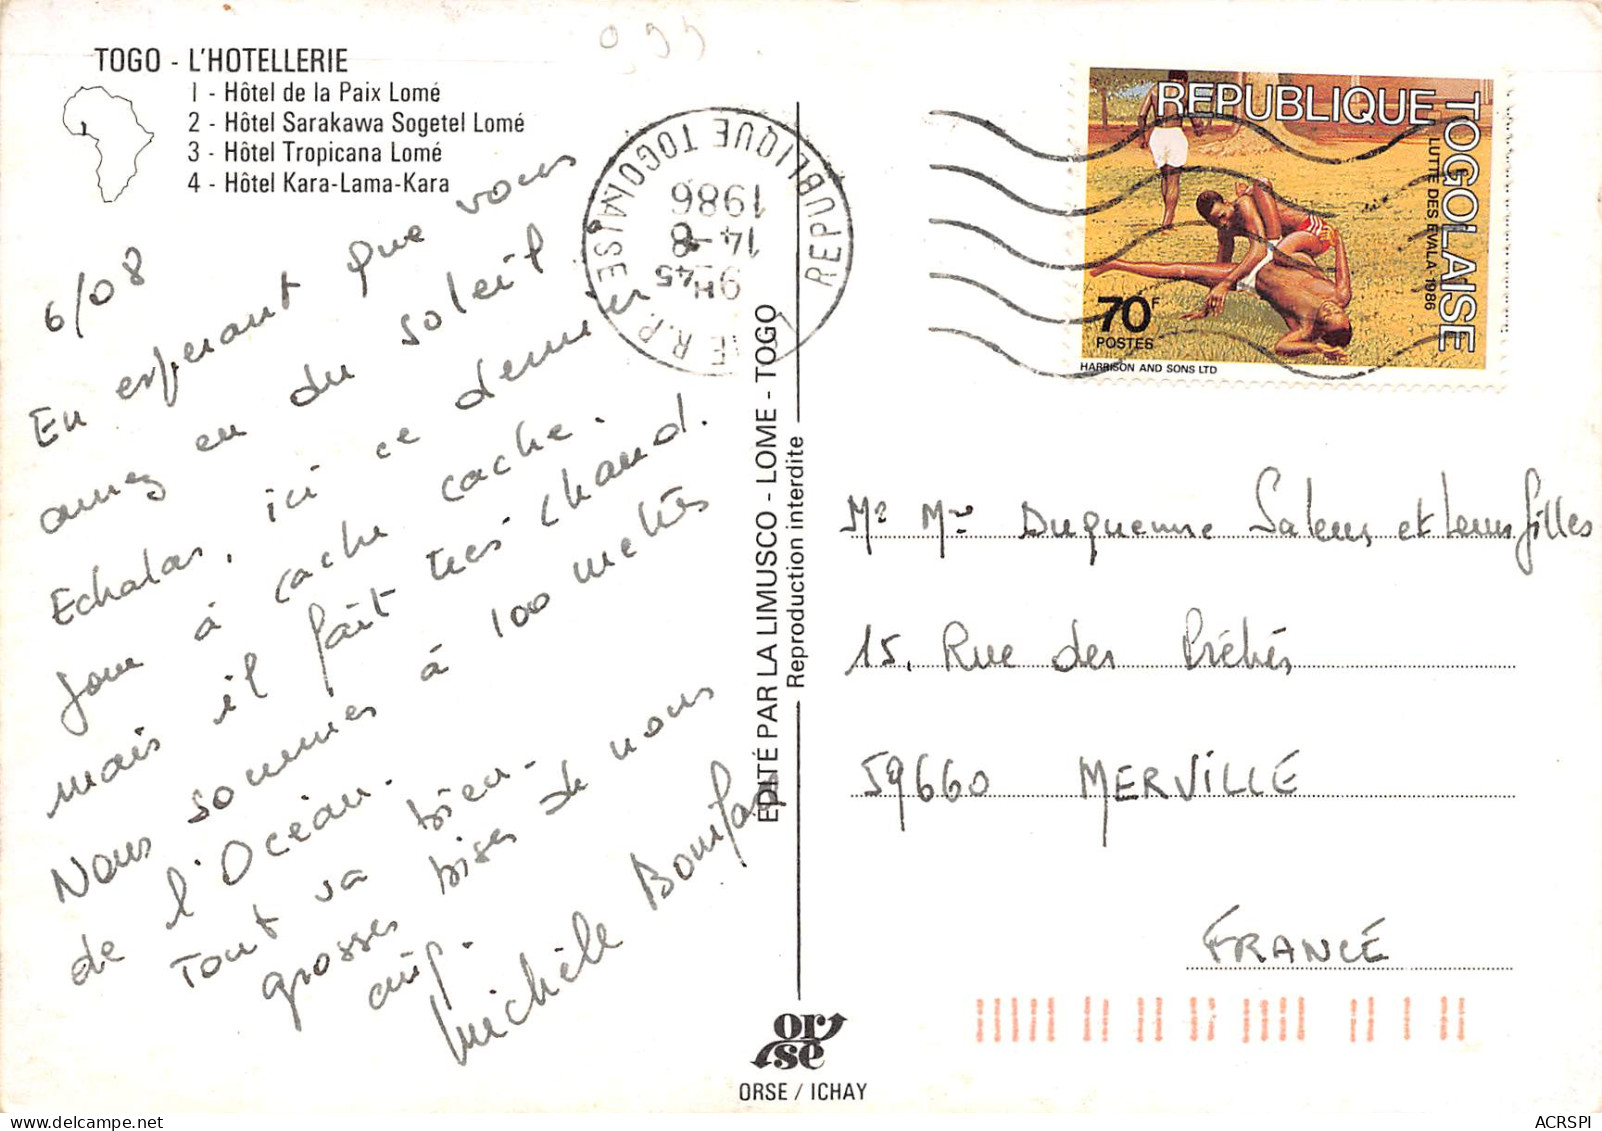 TOGO - L'HOTELLERIE
1 - Hôtel de la Paix Lomé
2 - Hôtel Sarakawa Sogetel Lomé
3 - Hôtel Tropicana Lomé
4 - Hôtel Kara-Lama-Kara
6/08
En espérant que vous
avez eu du soleil
Echalas, ici ce dernier
jour à cache cache.
mais il fait très chaud.
Nous sommes à 100 mètres
de l'Océan.
Tout va bien.
grosses bises de nous
Michèle
EDITÉ PAR LA LIMUSCO - LOME - TOGO
Reproduction interdite
orse
ORSE / ICHAY
REPUBLIQUE TOGOLAISE
9H-45
14-8
1986
REPUBLIQUE TOGOLAISE
LUTTE DES EVALA-1986
70F
POSTES
HARRISON AND SONS LTD
Mr Mme Duquenne Salens et leurs filles
15, Rue des Prêtres
59660 MERVILLE
FRANCE
ACRSPI